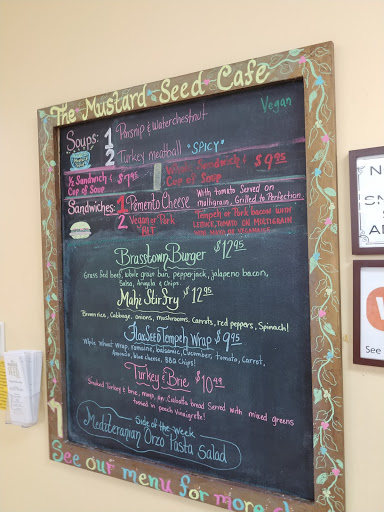 The Mustard Seed Cafe
Vegan
Soups: 1 Parsnip & Waterchestnut
2 Turkey meatball "SPICY"
½ Sandwich & $7.95
Cup of Soup
Whole Sandwich & $9.95
Cup of Soup
Sandwiches: 1 Pemento Cheese
With tomato Served on
multigrain, Grilled to Perfection
2 Vegan or Pork
BLT
Tempeh or Pork bacon with
lettuce, tomato on multigrain
with mayo or
Brasstown Burger $12.95
Grass fed beef, whole grain bun, pepperjack, jalapeno bacon,
Salsa, Arugula & chips.
Mahi Stir fry $12.95
Brown rice, Cabbage, onions, mushrooms, carrots, red peppers, Spinach!
FlaxSeed Tempeh Wrap $9.95
Whole Wheat Wrap, romaine, balsamic, Cucumber, tomato, Carrot,
Avocado, blue cheese, BBQ Chips!
Turkey & Brie $10.99
Smoked Turkey & brie, mayo, on Ciabatta bread Served with mixed greens
tossed in peach vinaigrette!
Side of the Week
Mediteranian Orzo Pasta Salad
See our menu for more
See